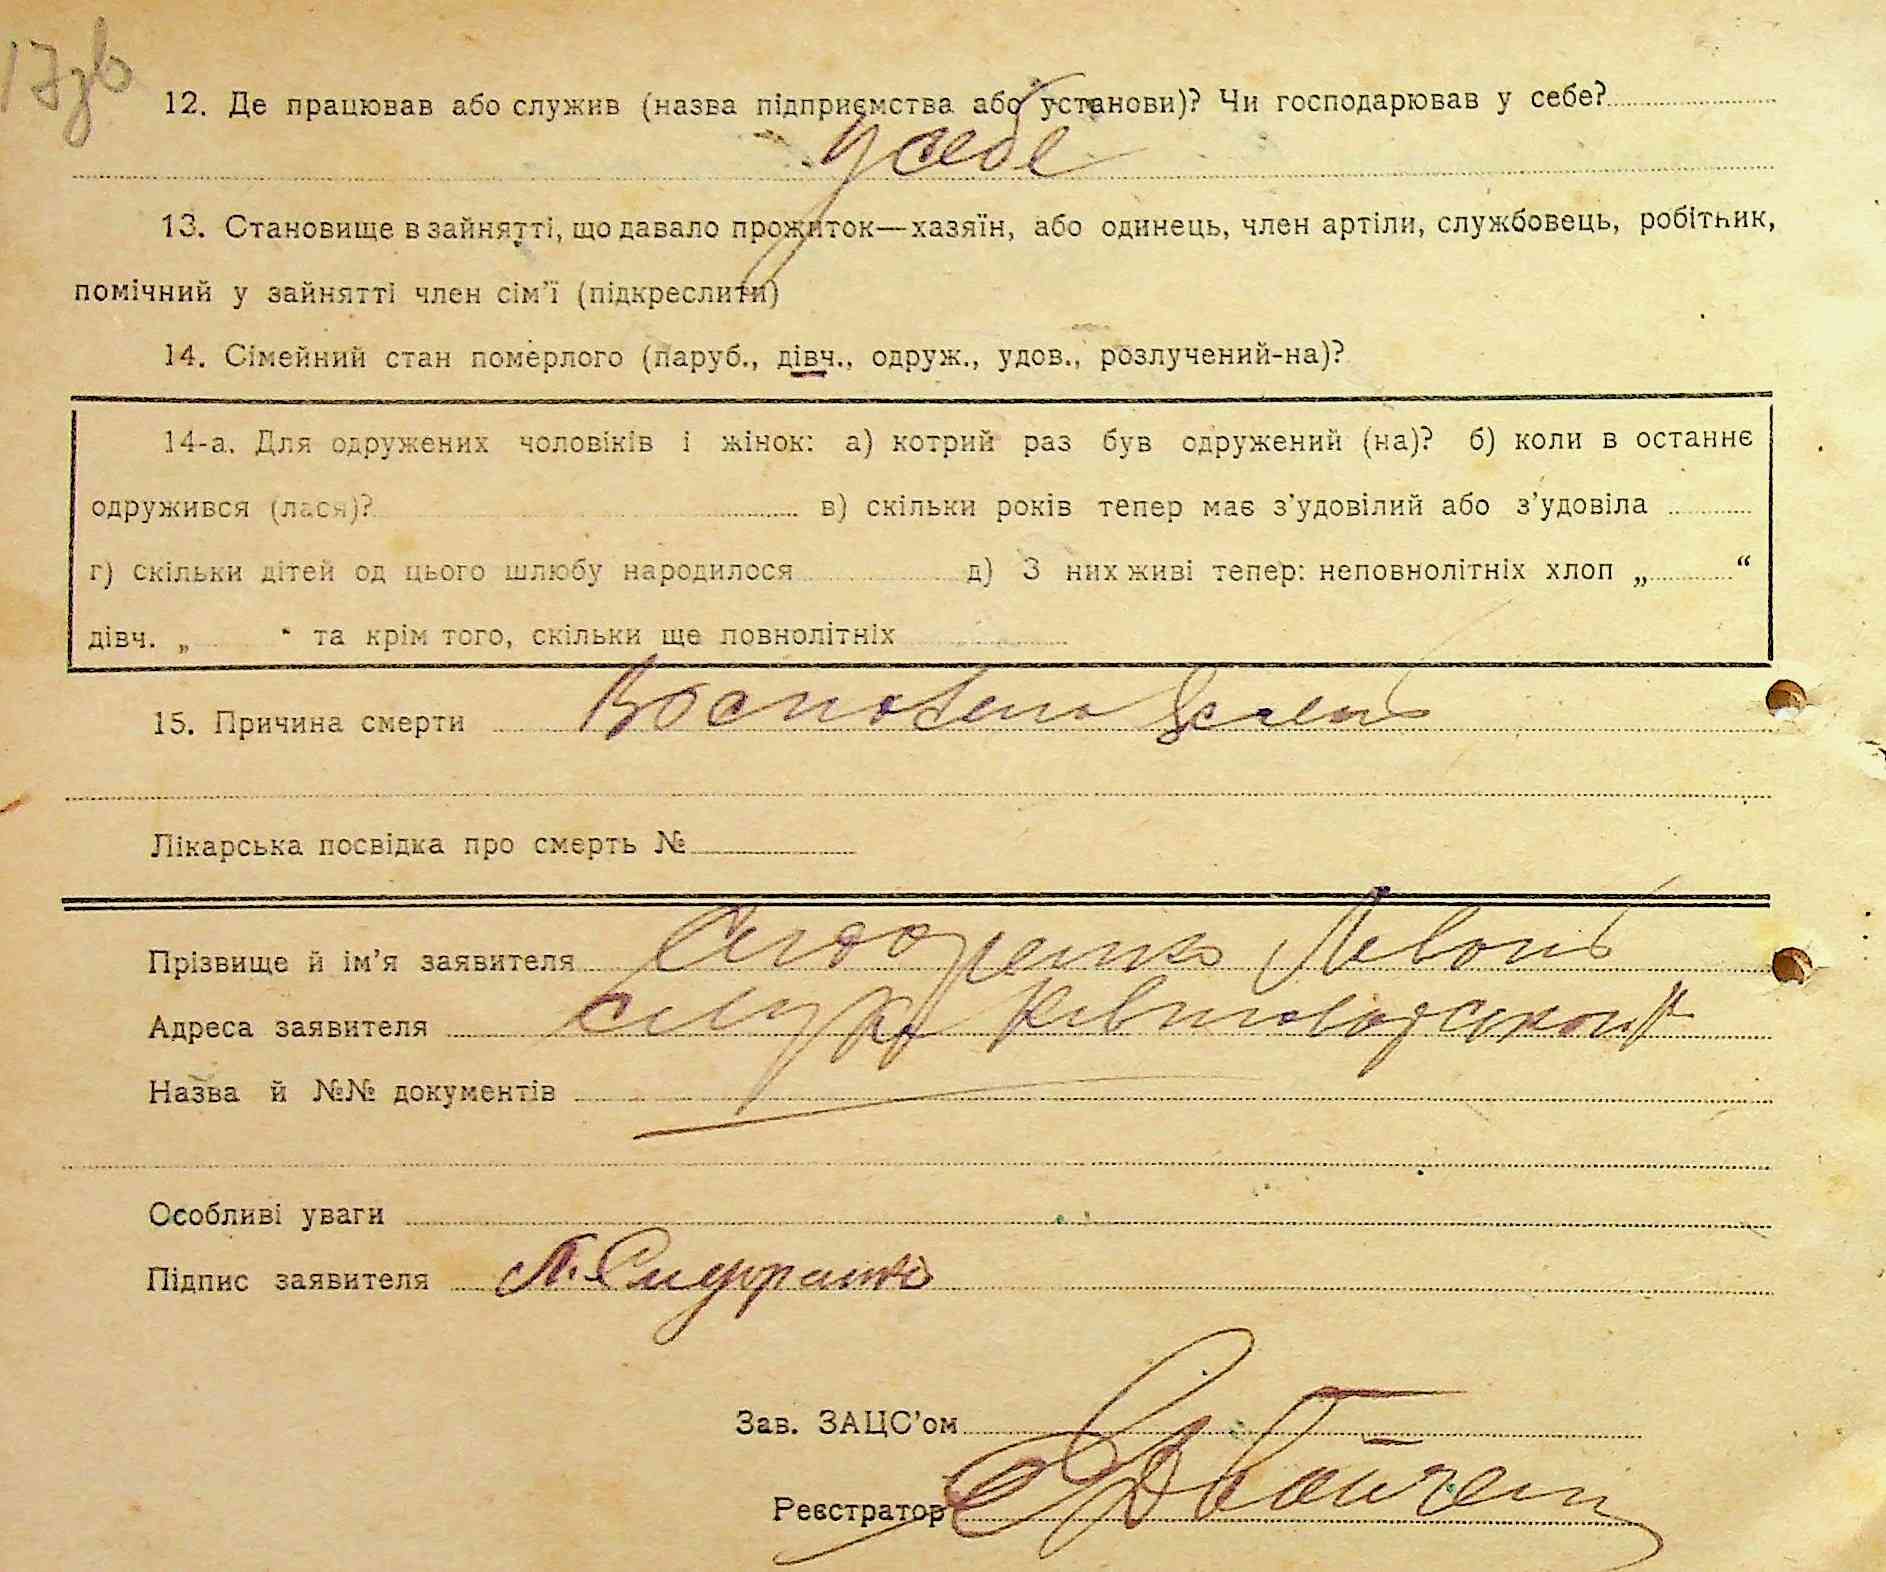 17зв
12. Де працював або служив (назва підприємства або установи)? Чи господарював у себе?
у себе
13. Становище в зайнятті, що давало прожиток—хазяїн, або одинець, член артіли, службовець, робітник,
помічний у зайнятті член сім'ї (підкреслити)
14. Сімейний стан померлого (паруб., дівч., одруж., удов., розлучений-на)?
14-а. Для одружених чоловіків і жінок: а) котрий раз був одружений (на)? б) коли в останнє
одружився (лася)? в) скільки років тепер має з'удовілий або з'удовіла
г) скільки дітей од цього шлюбу народилося д) З них живі тепер: неповнолітніх хлоп „ “
дівч. „ “ та крім того, скільки ще повнолітніх
15. Причина смерти
Лікарська посвідка про смерть №
Прізвище й ім'я заявителя Сидоренко Левон
Адреса заявителя
Назва й №№ документів
Особливі уваги
Підпис заявителя Л. Сидоренко
Зав. ЗАЦС'ом
Реєстратор